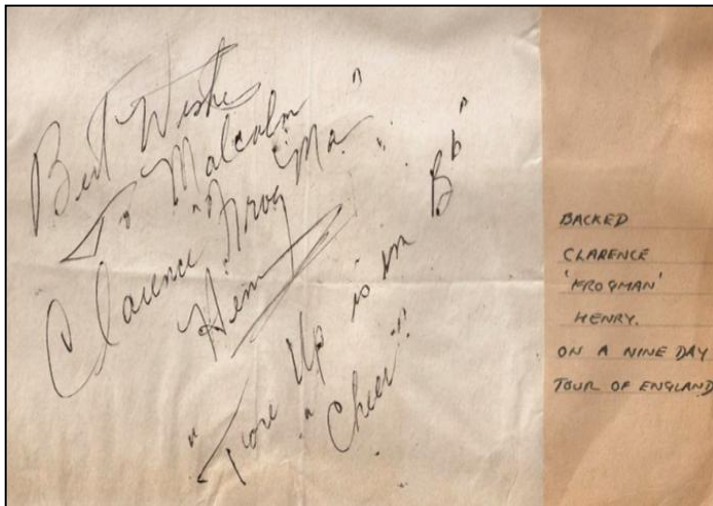 Best Wishes
To Malcolm
Clarence "Frog Man"
Henry
"Tore Up is in Bb"
"Cheer"!!
BACKED
CLARENCE
'FROGMAN'
HENRY.
ON A NINE DAY
TOUR OF ENGLAND